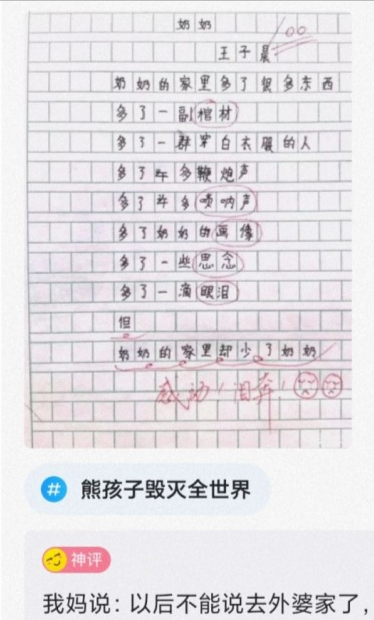 奶奶
100
王子晨
奶奶的家里多了很多东西
多了一副棺材
多了一群穿白衣服的人
多了许多鞭炮声
多了许多唢呐声
多了奶奶的画像
多了一些思念
多了一滴眼泪
但
奶奶的家里却少了奶奶
感动！泪奔！
# 熊孩子毁灭全世界
神评
我妈说：以后不能说去外婆家了，